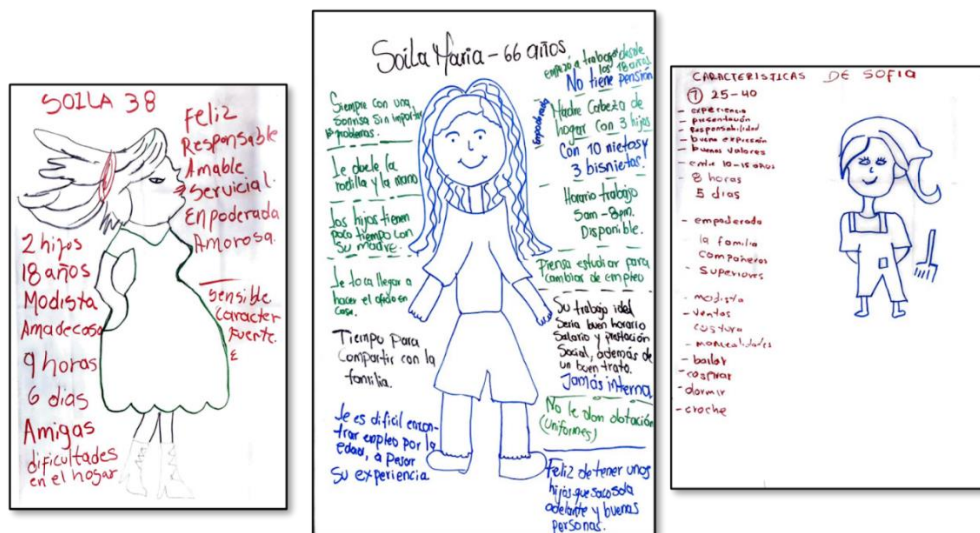 SOILA 38
Feliz
Responsable
Amable
Servicial.
Empoderada
Amorosa.
sensible
caracter
fuerte.
2 hijos
18 años
Modista
Ama de casa
9 horas
6 dias
Amigas
dificultades
en el hogar
Soila Maria - 66 años
Siempre con una
sonrisa sin importar
problemas.
Le duele la
rodilla y la mano
Los hijos tienen
poco tiempo con
su madre.
Le toca llegar a
hacer el oficio en
casa.
Tiempo para
compartir con la
familia.
Le es dificil encon-
trar empleo por la
edad, a pesar
su experiencia
empezó a trabajar desde
los 18 años
No tiene pensión
Madre Cabeza de
hogar con 3 hijos
Con 10 nietos y
3 bisnietas.
Horario trabajo
5am - 8pm.
Disponible.
Piensa estudiar para
cambiar de empleo
Su trabajo ideal
Seria buen horario
Salario y prestación
Social, además de
un buen trato.
Jamás interna.
No le dan dotación
(uniformes)
Feliz de tener unos
hijos que saco sola
adelante y buenas
personas.
CARACTERISTICAS DE SOFIA
25-40
- experiencia
- presentación
- responsabilidad
- buena expresión
- buenos valores
- entre 10-15 años
- 8 horas
5 dias
- empoderada
la familia
compañeros
- superiores
- modista
- ventas
costura
- manualidades
- bailar
- cospirar
- dormir
- croche